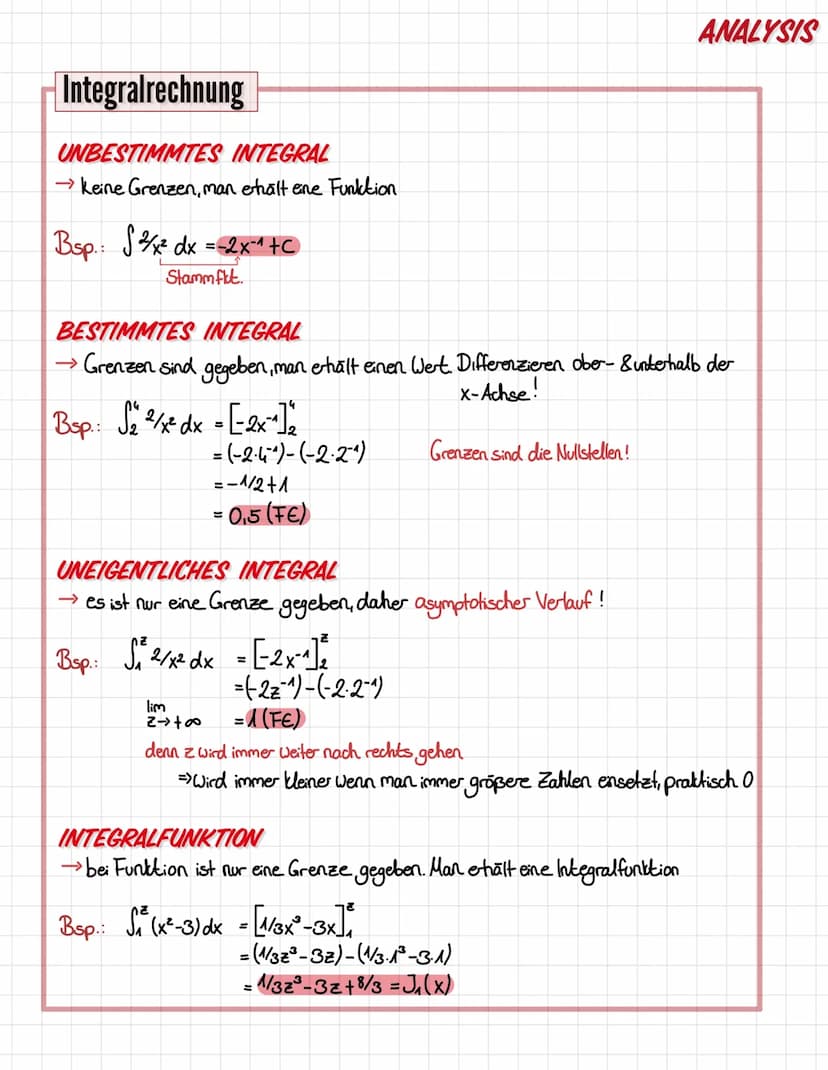 ANALYSIS
Integralrechnung
UNBESTIMMTES INTEGRAL
→ keine Grenzen, man erhält eine Funktion
Bsp.: ∫ 2/x² dx = -2x⁻¹ + C
Stammfkt.
BESTIMMTES INTEGRAL
→ Grenzen sind gegeben, man erhält einen Wert. Differenzieren ober- & unterhalb der
x-Achse!
Bsp.: ∫₂⁴ 2/x² dx = [-2x⁻¹]₂⁴
= (-2·4⁻¹) - (-2·2⁻¹)
Grenzen sind die Nullstellen!
= -1/2 + 1
= 0,5 (FE)
UNEIGENTLICHES INTEGRAL
→ es ist nur eine Grenze gegeben, daher asymptotischer Verlauf!
Bsp.: ∫₁ᶻ 2/x² dx = [-2x⁻¹]₂ᶻ
= (-2z⁻¹) - (-2·2⁻¹)
lim
z→+∞ = 1 (FE)
denn z wird immer weiter nach rechts gehen
⇒ wird immer kleiner wenn man immer größere Zahlen einsetzt, praktisch 0
INTEGRALFUNKTION
→ bei Funktion ist nur eine Grenze gegeben. Man erhält eine Integralfunktion
Bsp.: ∫₁ᶻ (x²-3) dx = [1/3x³ - 3x]₁ᶻ
= (1/3z³ - 3z) - (1/3·1³ - 3·1)
= 1/3z³ - 3z + 8/3 = J₁(x)